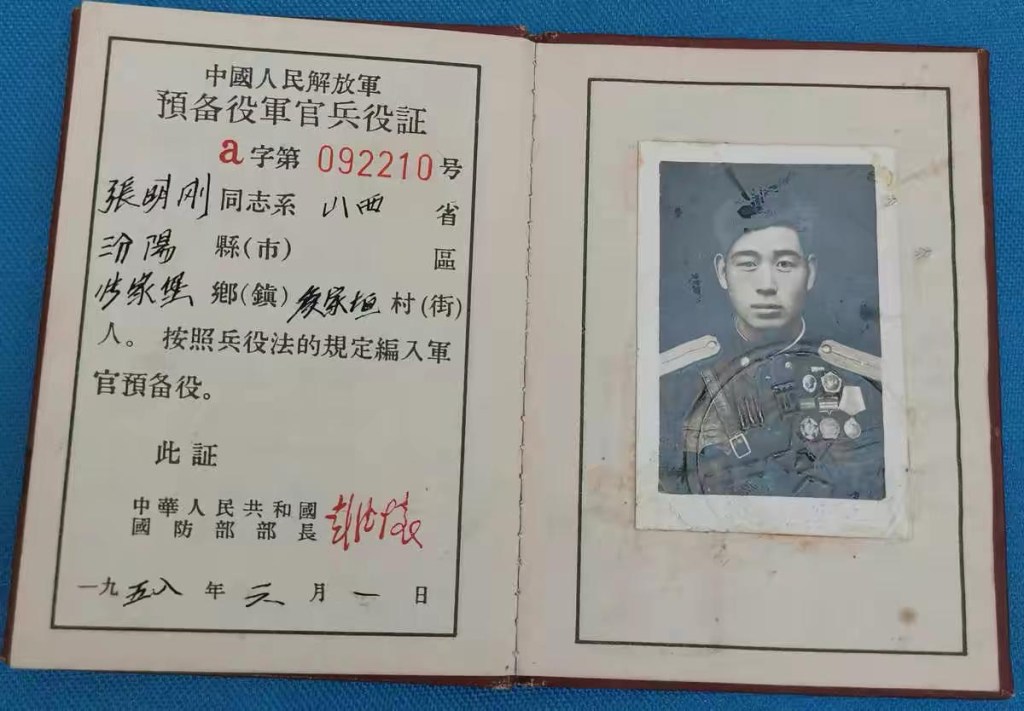 中國人民解放軍
預备役軍官兵役証
a字第 092210号
張明刚同志系 山西 省
汾陽 縣(市) 區
家堡 鄉(鎮) 家垣 村(街)
人。 按照兵役法的規定編入軍
官預备役。
此証
中華人民共和國
國防部部長 彭德懷
一九五八年 元 月 一 日